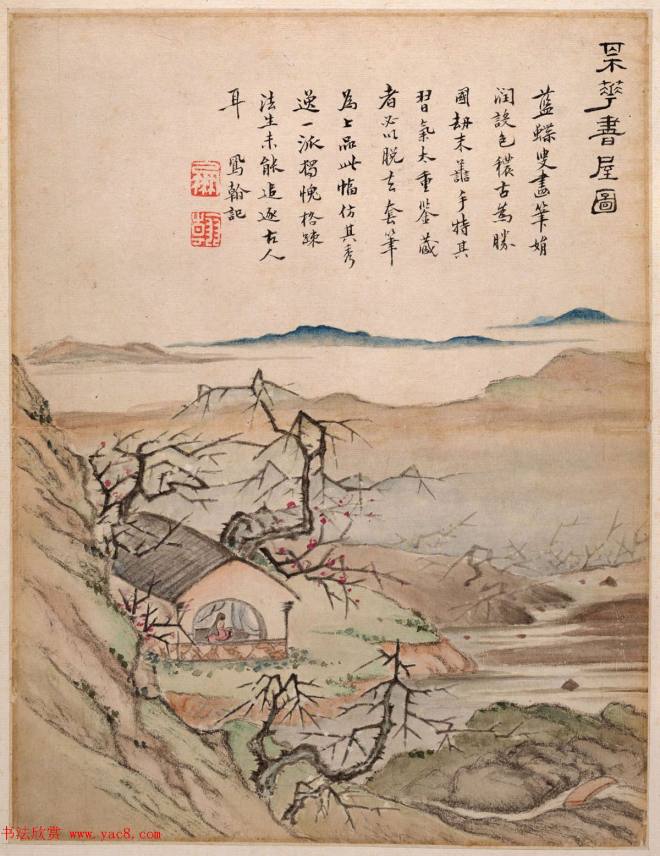 呆華書屋圖
藍蝶叟畫筆娟
潤設色穠古為勝
國劫末譱手特其
習氣太重鉴藏
者必以脱去套筆
為上品此幅仿其秀
逸一派獨愧格踈
法生未能追逐古人
耳 鳳翰記
书法欣赏 www.yac8.com